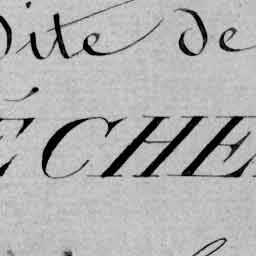 dite de
ÉCHE